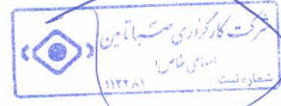 شرکت کارگزاری صبا تامین
(سهامی خاص)
شماره ثبت
۱۱۲۲۸۱